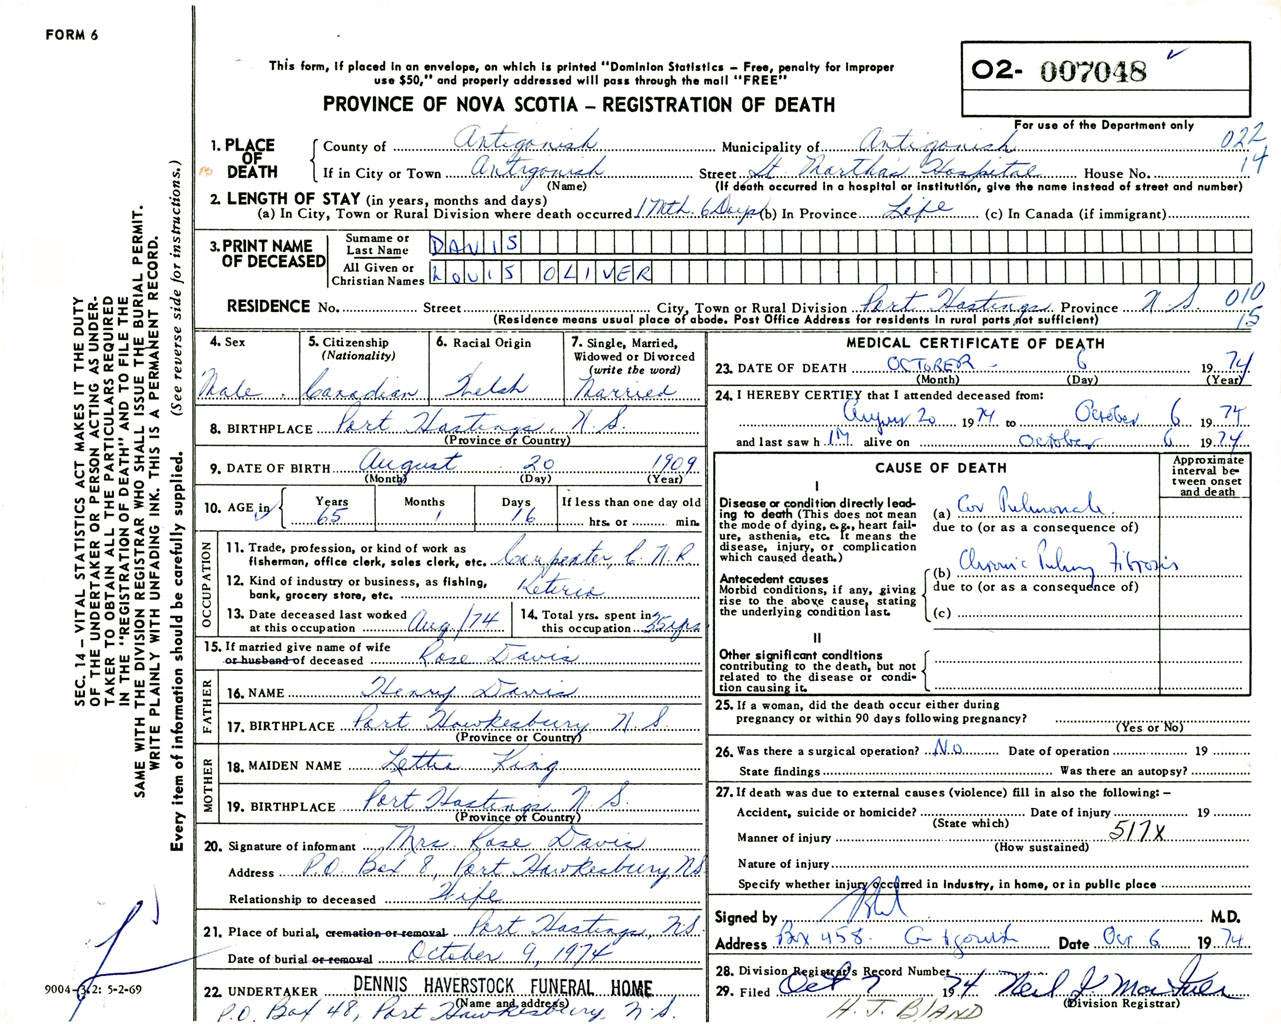 FORM 6
This form, if placed in an envelope, on which is printed "Dominion Statistics – Free, penalty for improper
use $50," and properly addressed will pass through the mail "FREE"
PROVINCE OF NOVA SCOTIA – REGISTRATION OF DEATH
02- 007048
For use of the Department only
022
14
1. PLACE OF DEATH
County of Antigonish Municipality of Antigonish
If in City or Town Antigonish Street St. Martha's Hospital House No.
(Name) (If death occurred in a hospital or institution, give the name instead of street and number)
2. LENGTH OF STAY (in years, months and days)
(a) In City, Town or Rural Division where death occurred 1 Mth. 6 Days (b) In Province Life (c) In Canada (if immigrant)
3. PRINT NAME OF DECEASED
Surname or Last Name DAVIS
All Given or Christian Names LOUIS OLIVER
RESIDENCE No. Street City, Town or Rural Division Port Hastings Province N.S. 010
(Residence means usual place of abode. Post Office Address for residents in rural parts not sufficient) 15
SEC. 14 – VITAL STATISTICS ACT MAKES IT THE DUTY
OF THE UNDERTAKER OR PERSON ACTING AS UNDER-
TAKER TO OBTAIN ALL THE PARTICULARS REQUIRED
IN THE "REGISTRATION OF DEATH" AND TO FILE THE
SAME WITH THE DIVISION REGISTRAR WHO SHALL ISSUE THE BURIAL PERMIT.
WRITE PLAINLY WITH UNFADING INK. THIS IS A PERMANENT RECORD.
Every item of information should be carefully supplied. (See reverse side for instructions.)
4. Sex
Male
5. Citizenship
(Nationality)
Canadian
6. Racial Origin
Welsh
7. Single, Married,
Widowed or Divorced
(write the word)
Married
8. BIRTHPLACE Port Hastings, N.S.
(Province or Country)
9. DATE OF BIRTH August 20 1909
(Month) (Day) (Year)
10. AGE in Years 65 Months 1 Days 16 If less than one day old
hrs. or min.
OCCUPATION
11. Trade, profession, or kind of work as
fisherman, office clerk, sales clerk, etc. Carpenter, C.N.R
12. Kind of industry or business, as fishing,
bank, grocery store, etc.
13. Date deceased last worked
at this occupation Aug/74
14. Total yrs. spent in
this occupation 35 yrs
15. If married give name of wife
or husband of deceased Rose Davis
FATHER
16. NAME Henry Davis
17. BIRTHPLACE Port Hawkesbury N.S.
(Province or Country)
MOTHER
18. MAIDEN NAME King
19. BIRTHPLACE Port Hastings N.S.
(Province of Country)
20. Signature of informant Mrs. Rose Davis
Address P.O. Box 8, Port Hawkesbury, NS
Relationship to deceased Wife
21. Place of burial, cremation or removal Port Hastings, NS.
Date of burial or removal October 9, 1974
22. UNDERTAKER DENNIS HAVERSTOCK FUNERAL HOME
(Name and address)
P.O. Box 48, Port Hawkesbury N.S.
9004-342: 5-2-69
MEDICAL CERTIFICATE OF DEATH
23. DATE OF DEATH OCTOBER – 6 1974
(Month) (Day) (Year)
24. I HEREBY CERTIFY that I attended deceased from:
August 20 1974 to October 6 1974
and last saw h IM alive on October 6 1974
CAUSE OF DEATH
Approximate
interval be-
tween onset
and death
I
Disease or condition directly lead-
ing to death (This does not mean
the mode of dying, e.g., heart fail-
ure, asthenia, etc. It means the
disease, injury, or complication
which caused death.)
(a) Cor Pulmonale
due to (or as a consequence of)
Antecedent causes
Morbid conditions, if any, giving
rise to the above cause, stating
the underlying condition last.
(b) Chronic Fibrosis
due to (or as a consequence of)
(c)
II
Other significant conditions
contributing to the death, but not
related to the disease or condi-
tion causing it.
25. If a woman, did the death occur either during
pregnancy or within 90 days following pregnancy?
(Yes or No)
26. Was there a surgical operation? No Date of operation 19
State findings Was there an autopsy?
27. If death was due to external causes (violence) fill in also the following: –
Accident, suicide or homicide? Date of injury 19
(State which)
517X
Manner of injury
(How sustained)
Nature of injury
Specify whether injury occurred in Industry, in home, or in public place
Signed by M.D.
Address Box 458. Antigonish Date Oct 6 1974
28. Division Registrar's Record Number
29. Filed Oct 7 1974 Neil J.
(Division Registrar)
H. J. BLAND